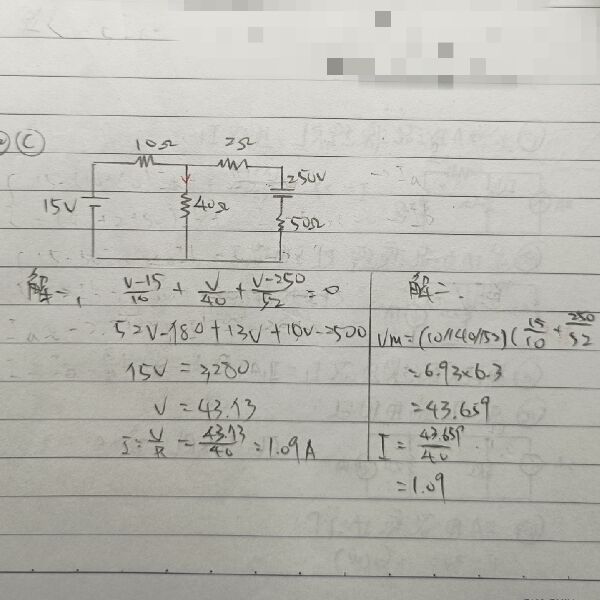 (C)
10Ω 2Ω
250V
15V 40Ω
50Ω
解一, V-15/10 + V/40 + V-250/52 = 0
52V-780+13V+10V-2500
15V = 3280
V = 43.73
I = V/R = 43.73/40 = 1.09A
解二.
Vm=(10//40//52)(15/10 + 250/52
=6.93×6.3
=43.659
I = 43.659/40
=1.09